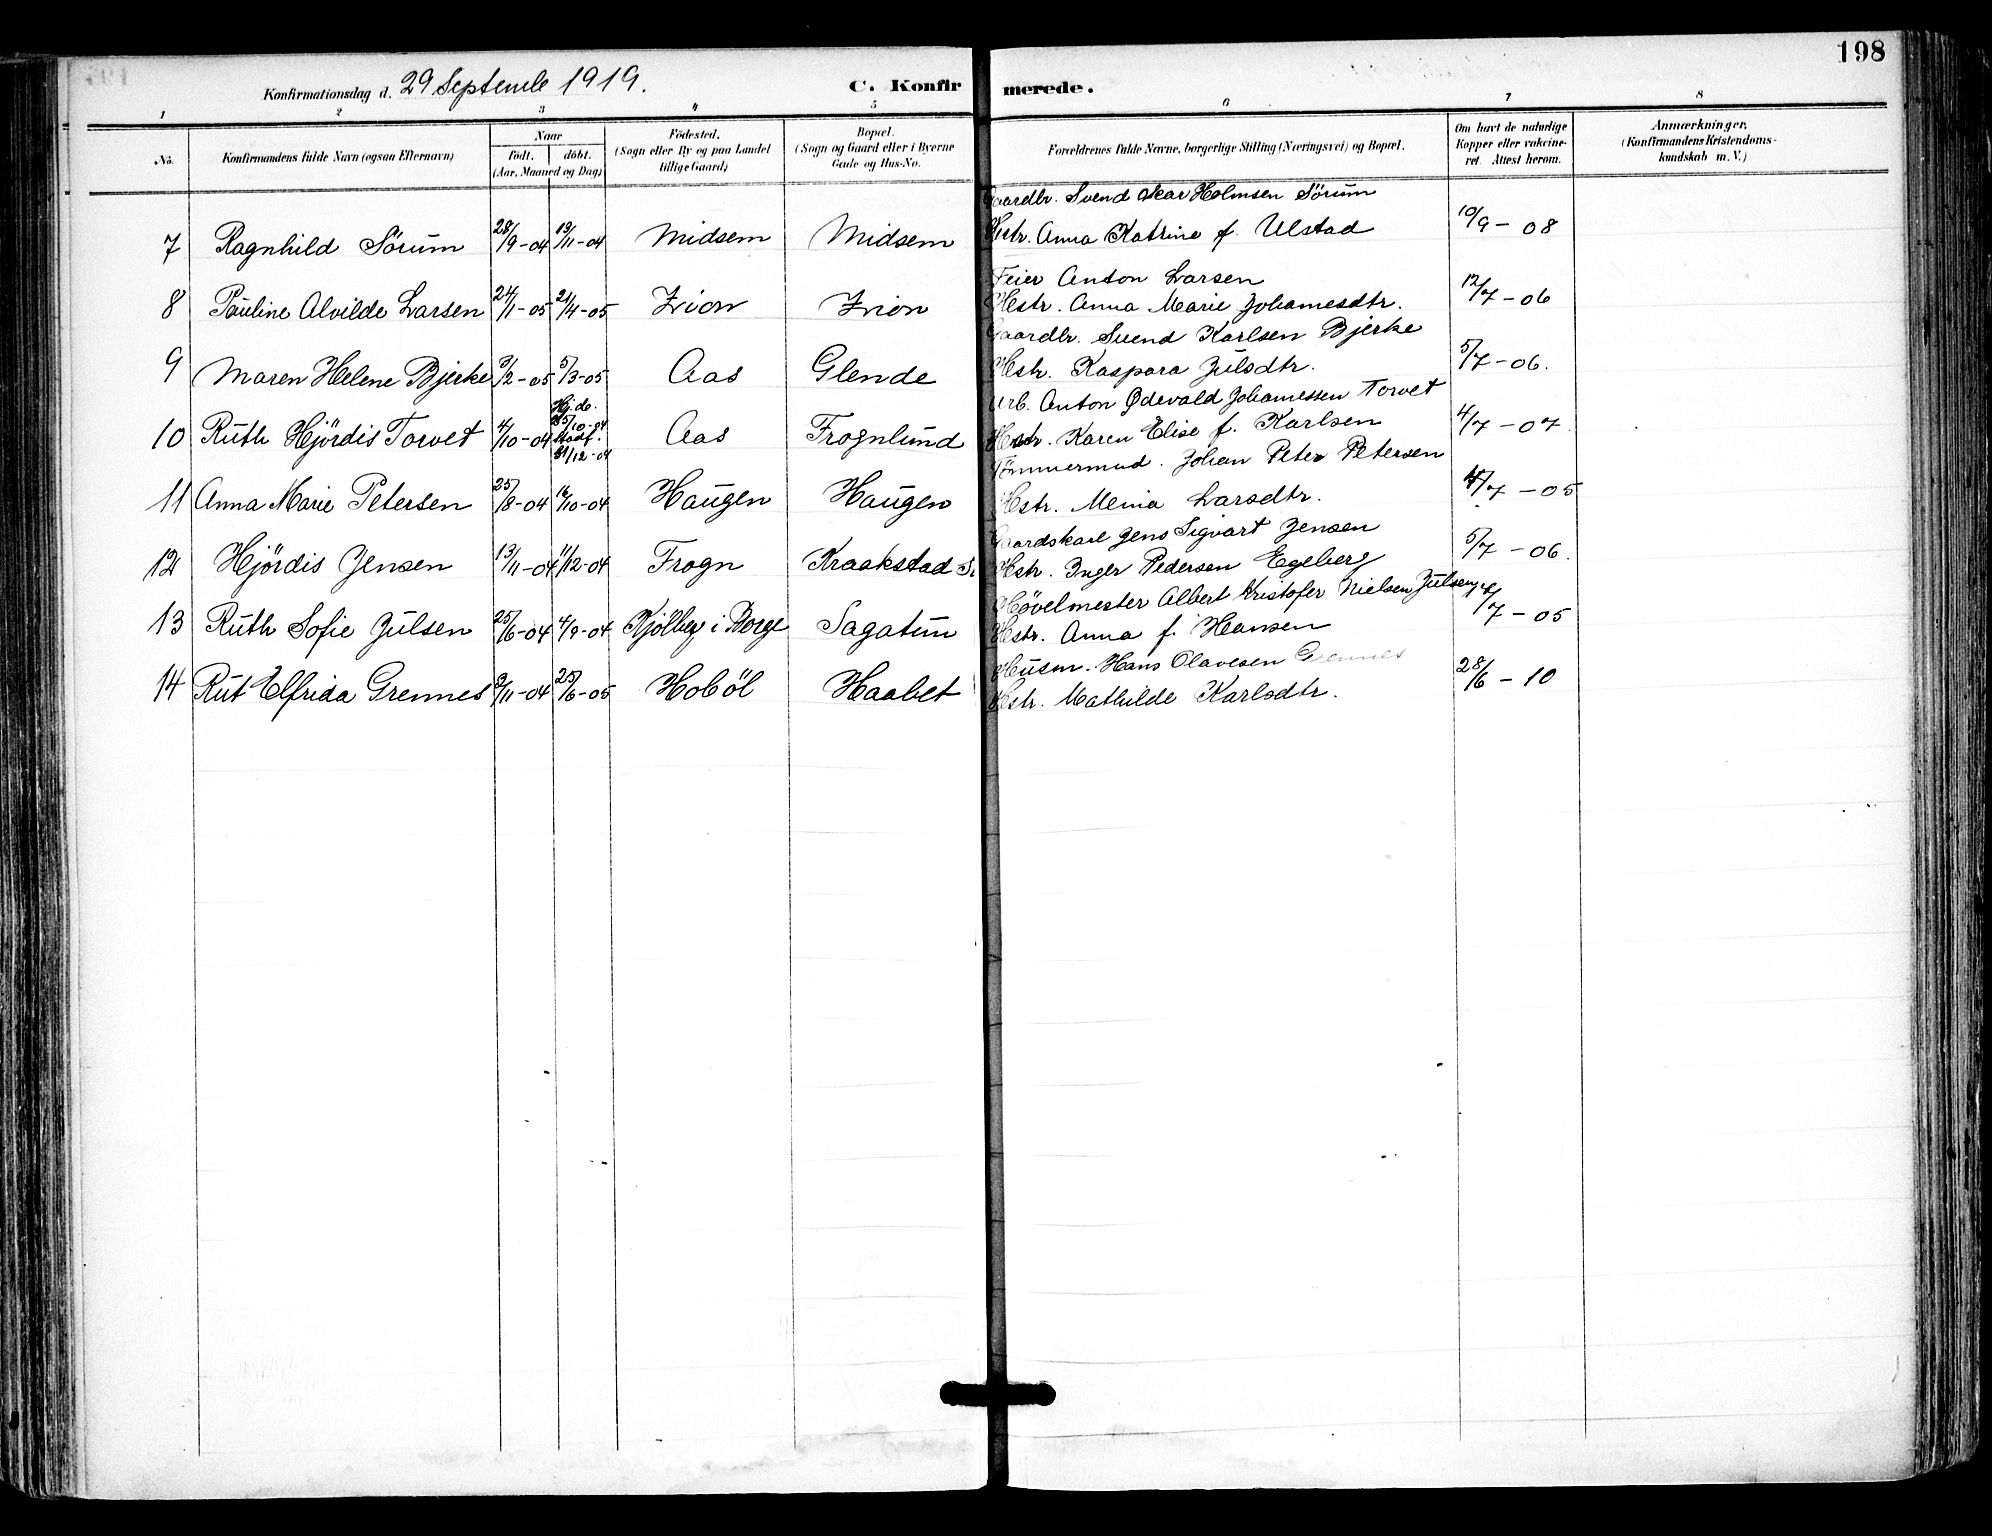 198
Konfirmationsdag d. 29 Septembe 1919.
C. Konfirmerede.
1 2 3 4 5 6 7 8
No. Konfirmandens fulde Navn (ogsaa Efternavn) Naar födt. döbt. (Aar, Maaned og Dag) Födested. (Sogn eller By og paa Landet tillige Gaard) Bopæl. (Sogn og Gaard eller i Byerne Gade og Hus-No. Forældrenes fulde Navne, borgerlige Stilling (Næringsvei) og Bopæl. Om havt de naturlige Kopper eller vakcineret. Attest herom. Anmærkninger. (Konfirmandens Kristendomskundskab m. V.)
Gaardbr. Svend Oskar Holmsen Sørum
7 Ragnhild Sørum 28/9-04 13/11-04 Midsem Midsem Hstr. Anna Katrine f. Ulstad 10/9-08
Feier Anton Larsen
8 Pauline Alvilde Larsen 24/1-05 21/4-05 Zion Zion Hstr. Anna Marie Johannesdtr. 12/7-06
Gaardbr. Svend Karlsen Bjerke
9 Maren Helene Bjerke 3/2-05 5/3-05 Aas Glende Hstr. Kaspara Julsdtr. 5/7-06.
Hj.db. Arb. Anton Ødevald Johannessen Torvet
10 Ruth Hjördis Torvet 4/10-04 25/10-04 Stadf. 31/12-04 Aas Frognlund Hstr. Karen Elise f. Karlsen 4/7-07.
Tömmermnd. Johan Peter Petersen
11 Anna Marie Petersen 25/8-04 16/10-04 Haugen Haugen Hstr. Menia Larsdtr. 4/7-05
Gaardskarl Jens Sigvart Jensen
12 Hjördis Jensen 13/11-04 11/12-04 Frogn Kraakstad Hstr. Inger Pedersen Egeberg 5/7-06.
Hövelmester Albert Kristofer Nielsen Julsen
13 Ruth Sofie Julsen 25/6-04 4/9-04 Kjölberg i Borge Sagatun Hstr. Anna f. Hansen 4/7-05
Husm. Hans Olavesen Grennes
14 Rut Elfrida Grennes 2/11-04 25/6-05 Hoböl Haabet Hstr. Mathilde Karlsdtr. 28/6-10